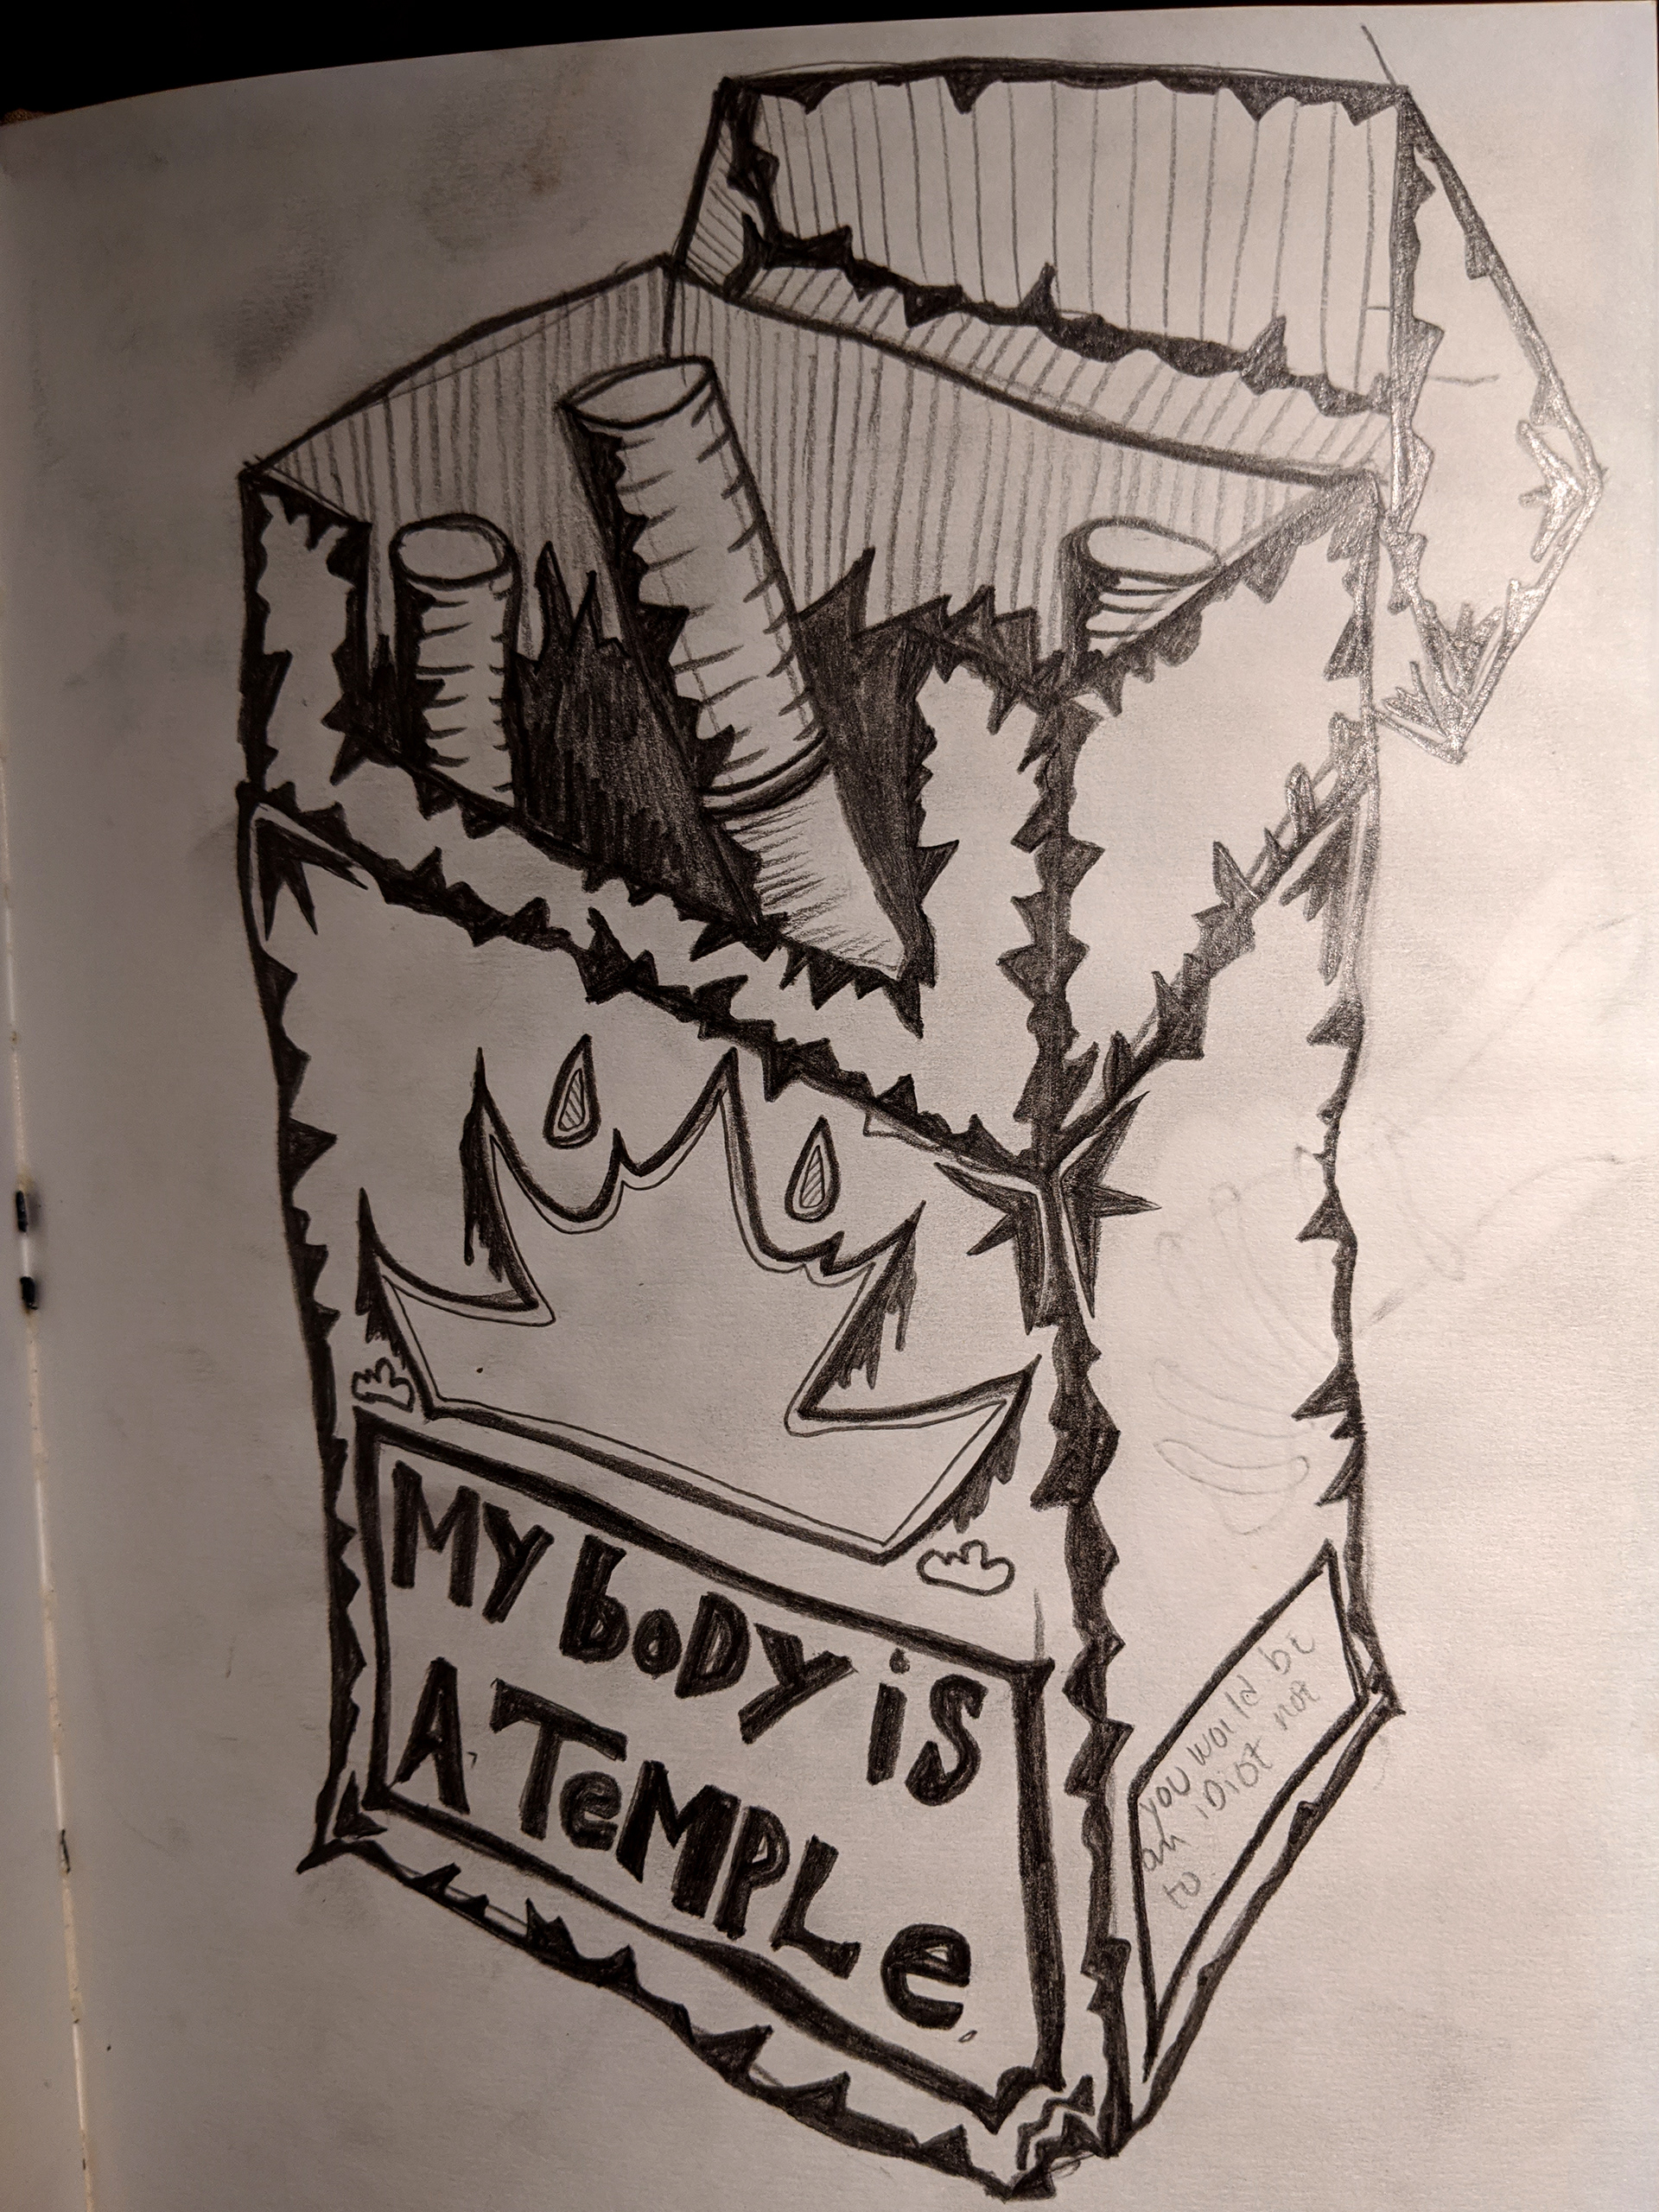 My boDy is
A TeMPLe
you would be
an iDiot not
to